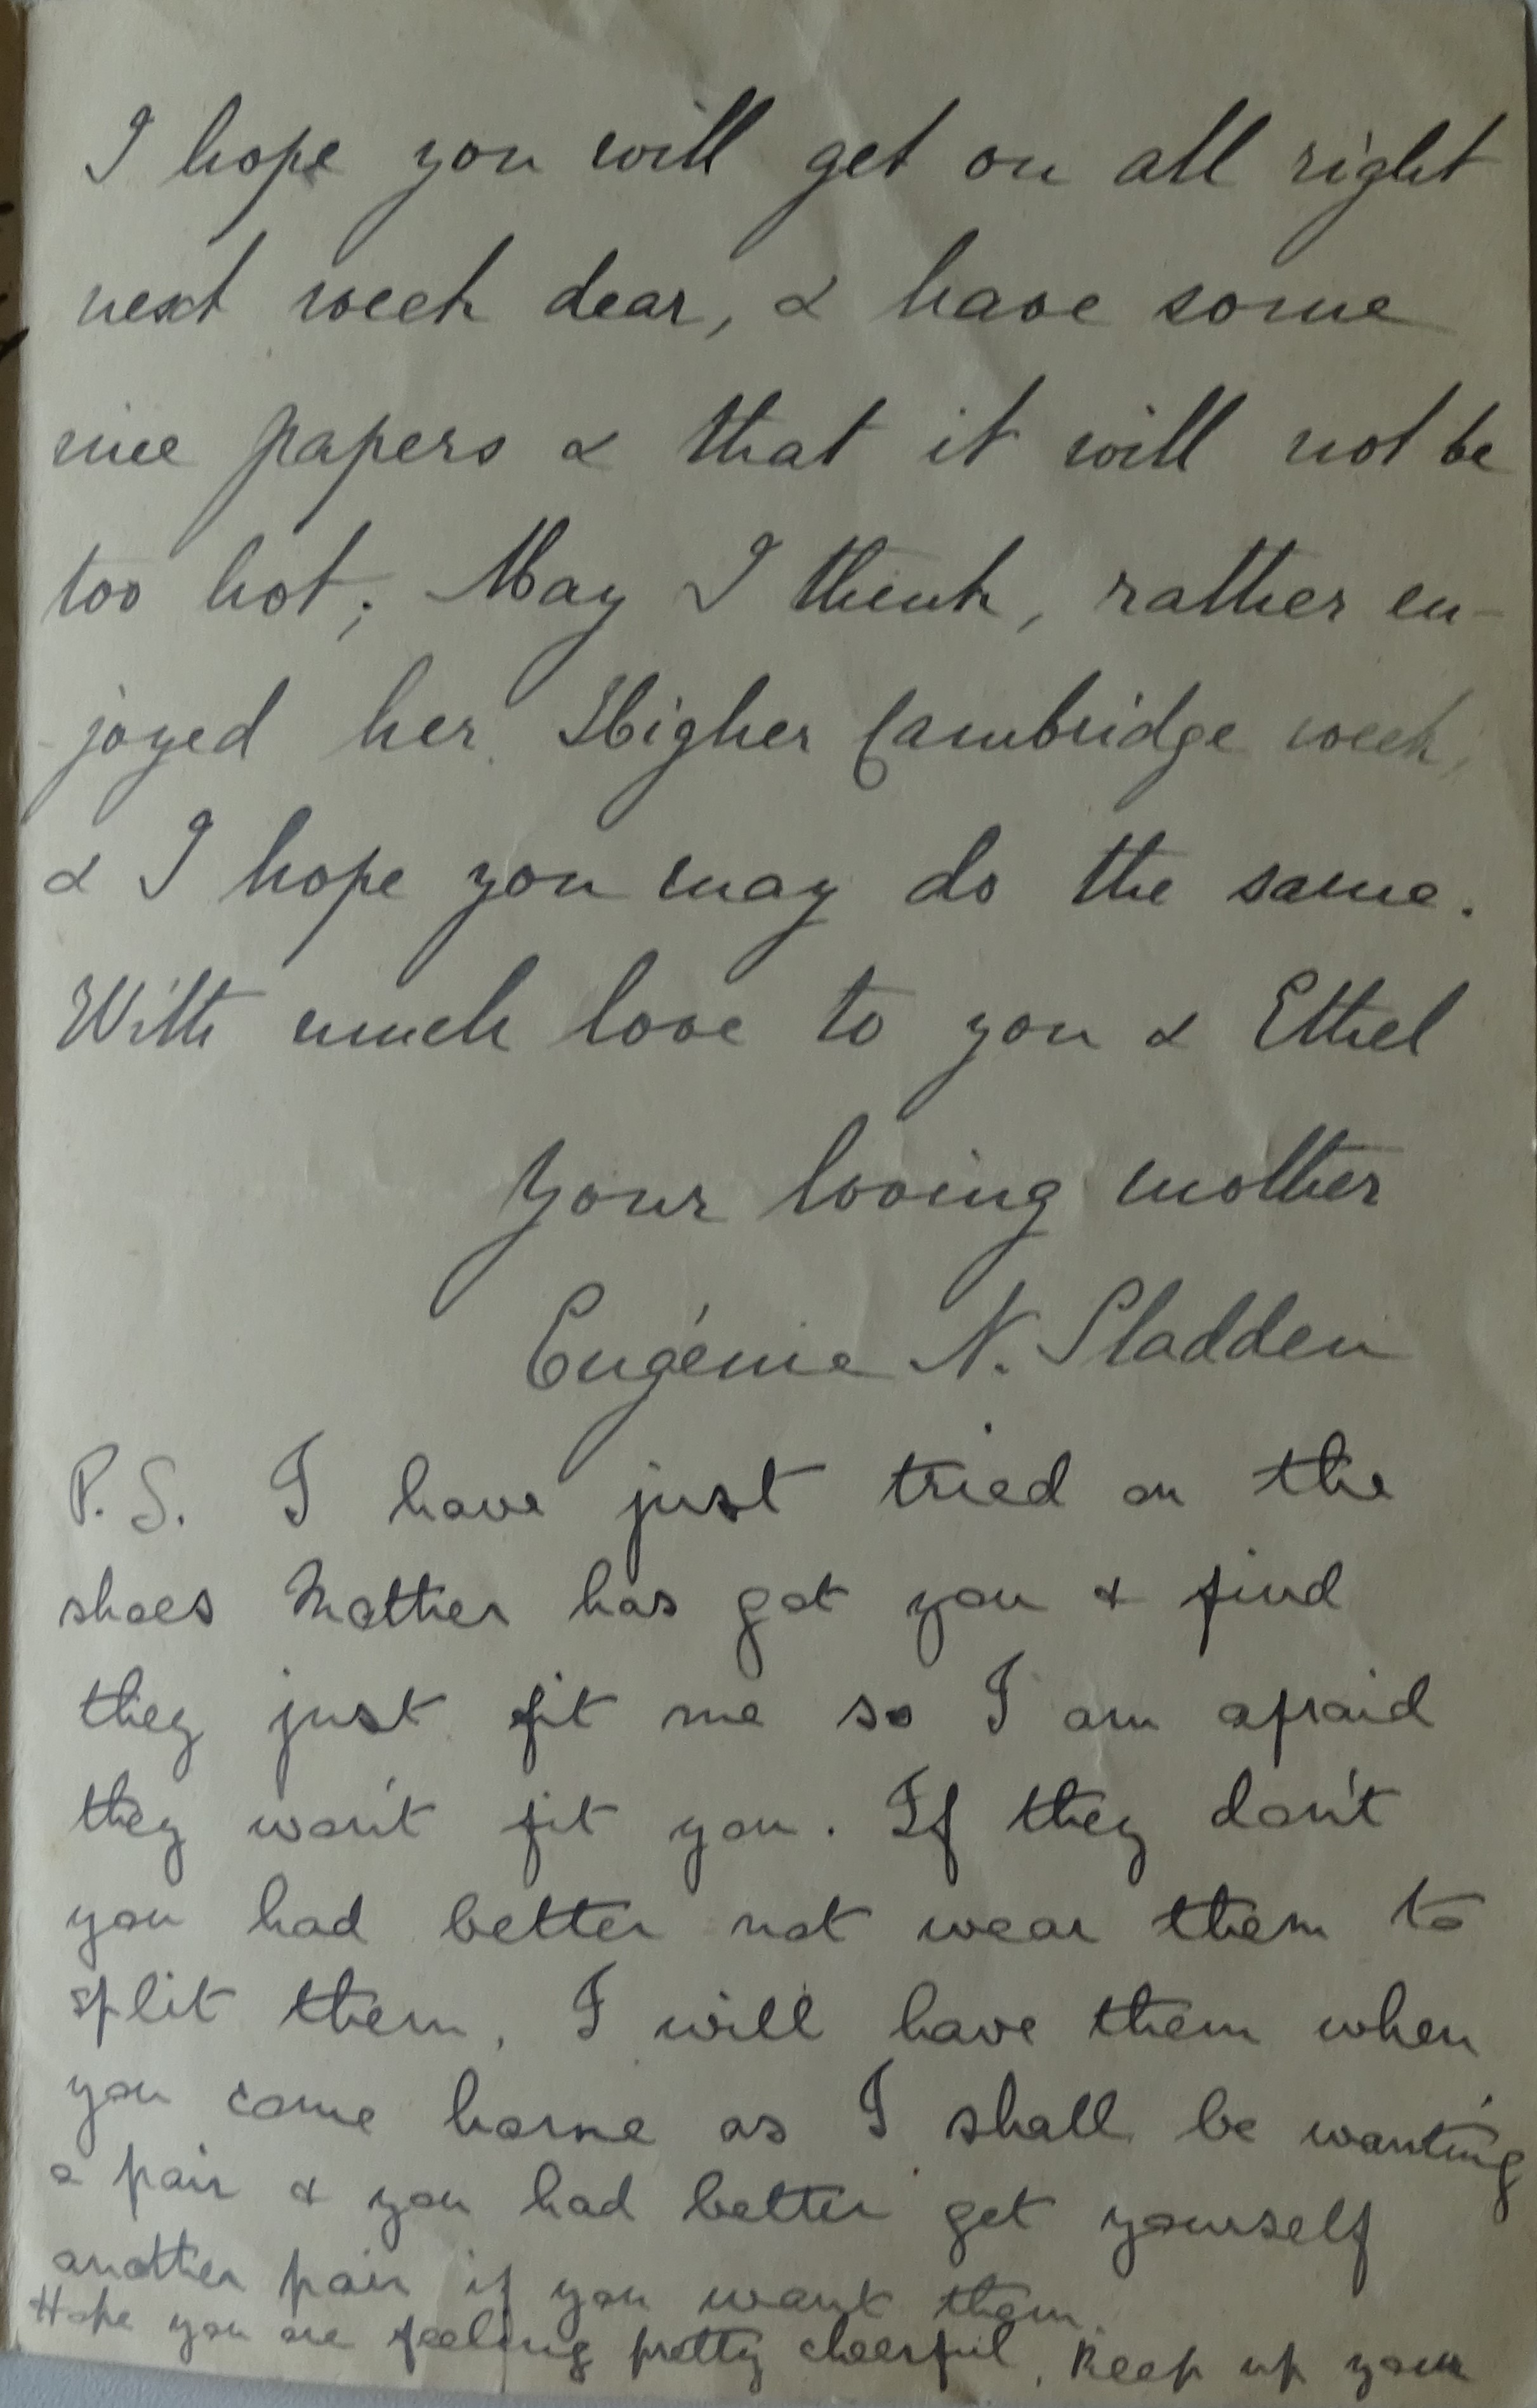 I hope you will get on all right
next week dear, & have some
nice papers & that it will not be
too hot; May I think, rather en-
-joyed her Higher Cambridge week,
& I hope you may do the same.
With much love to you & Ethel
Your loving mother
Eugénie N. Sladden
P.S. I have just tried on the
shoes Mother has got you & find
they just fit me so I am afraid
they won't fit you. If they don't
you had better not wear them to
split them, I will have them when
you come home as I shall be wanting
a pair & you had better get yourself
another pair if you want them.
Hope you are feeling pretty cheerful. Keep up your